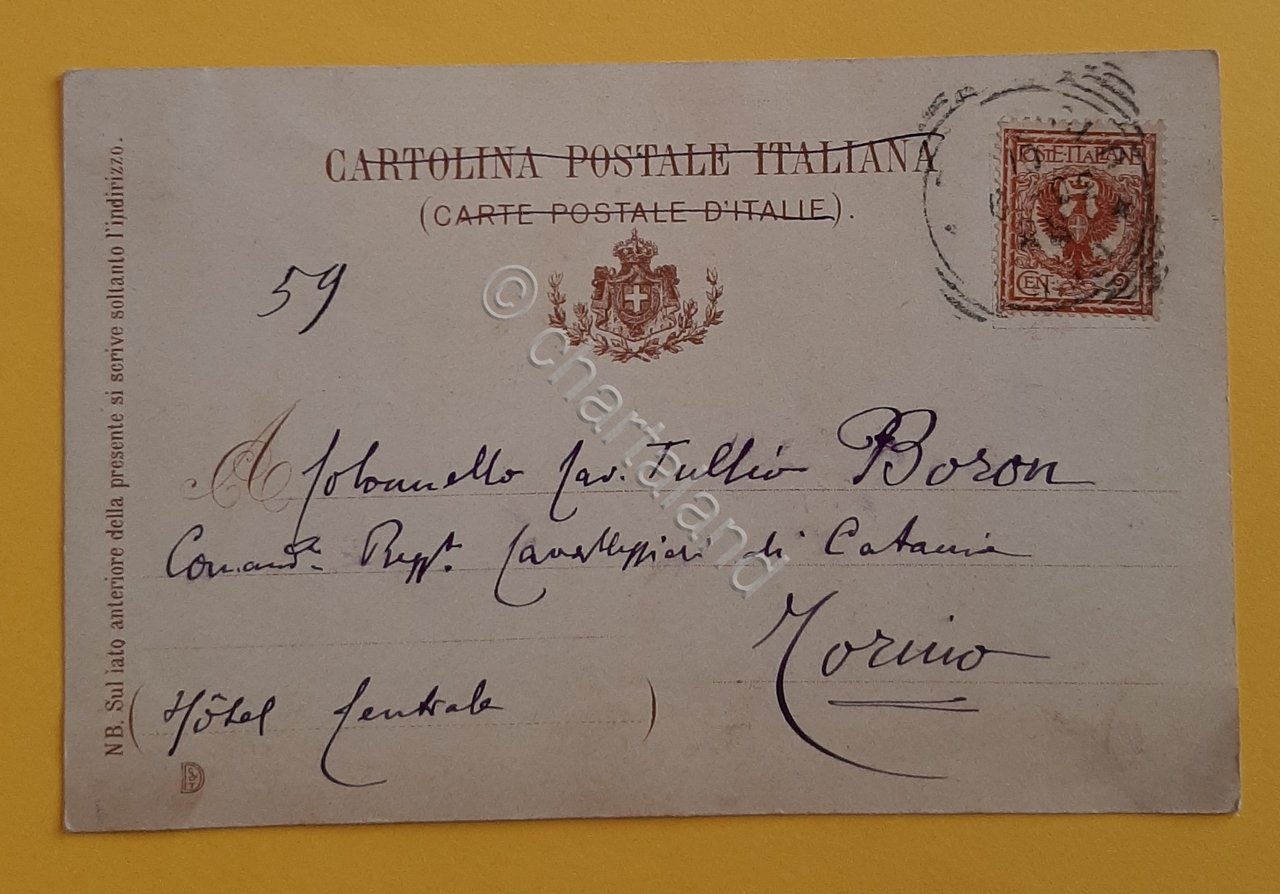 CARTOLINA POSTALE ITALIANA
(CARTE POSTALE D'ITALIE).
POSTE·ITALIANE
CEN. 2
59
© chartaland
A Colonnello Cav. Tullio Boron
Comand.te Regg.to Cavalleggieri di Catania
Torino
(Hôtel Centrale)
NB. Sul lato anteriore della presente si scrive soltanto l'indirizzo.